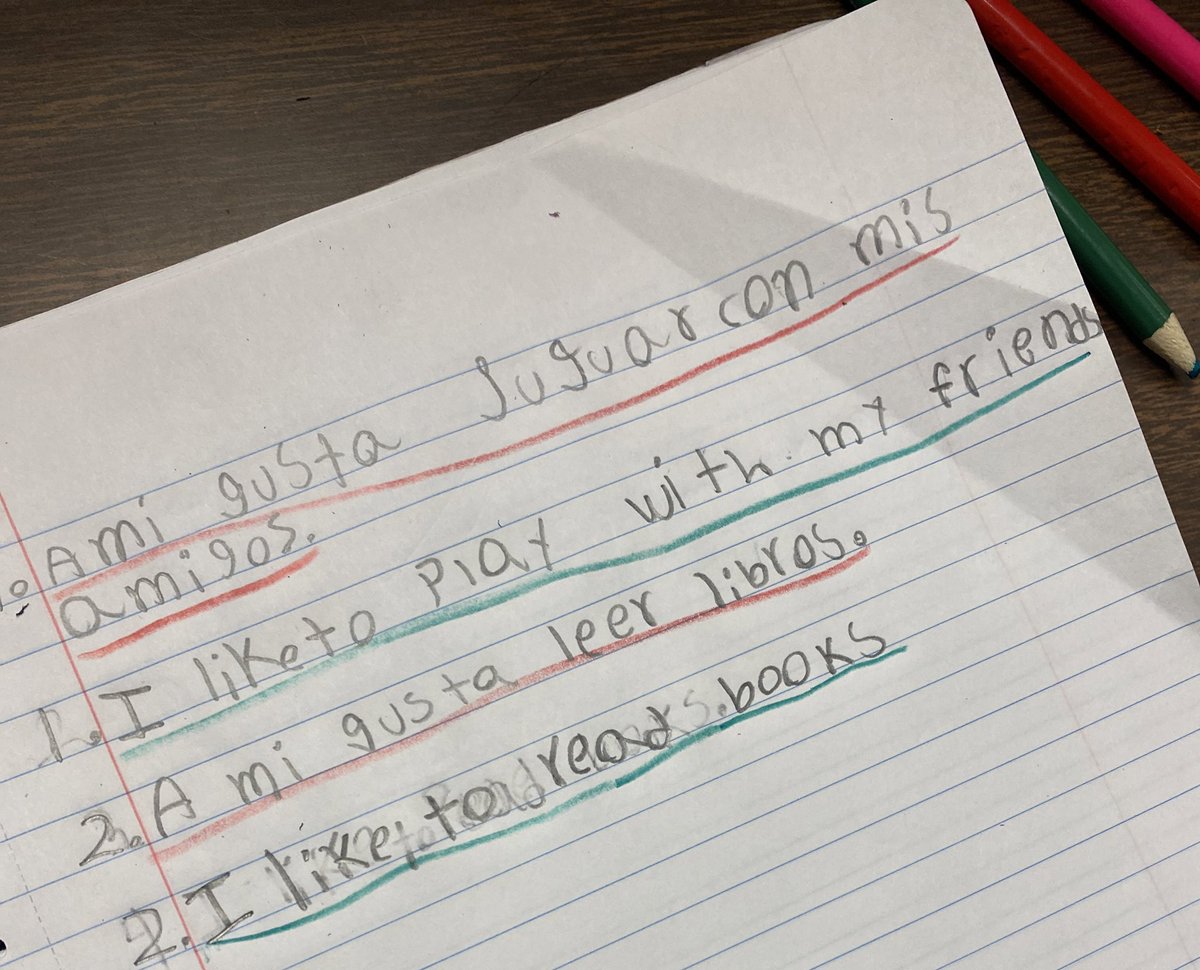 1. A mi gusta Juguar con mis
amigos.
1. I like to play with my friends
2. A mi gusta leer libros.
2. I like to read books